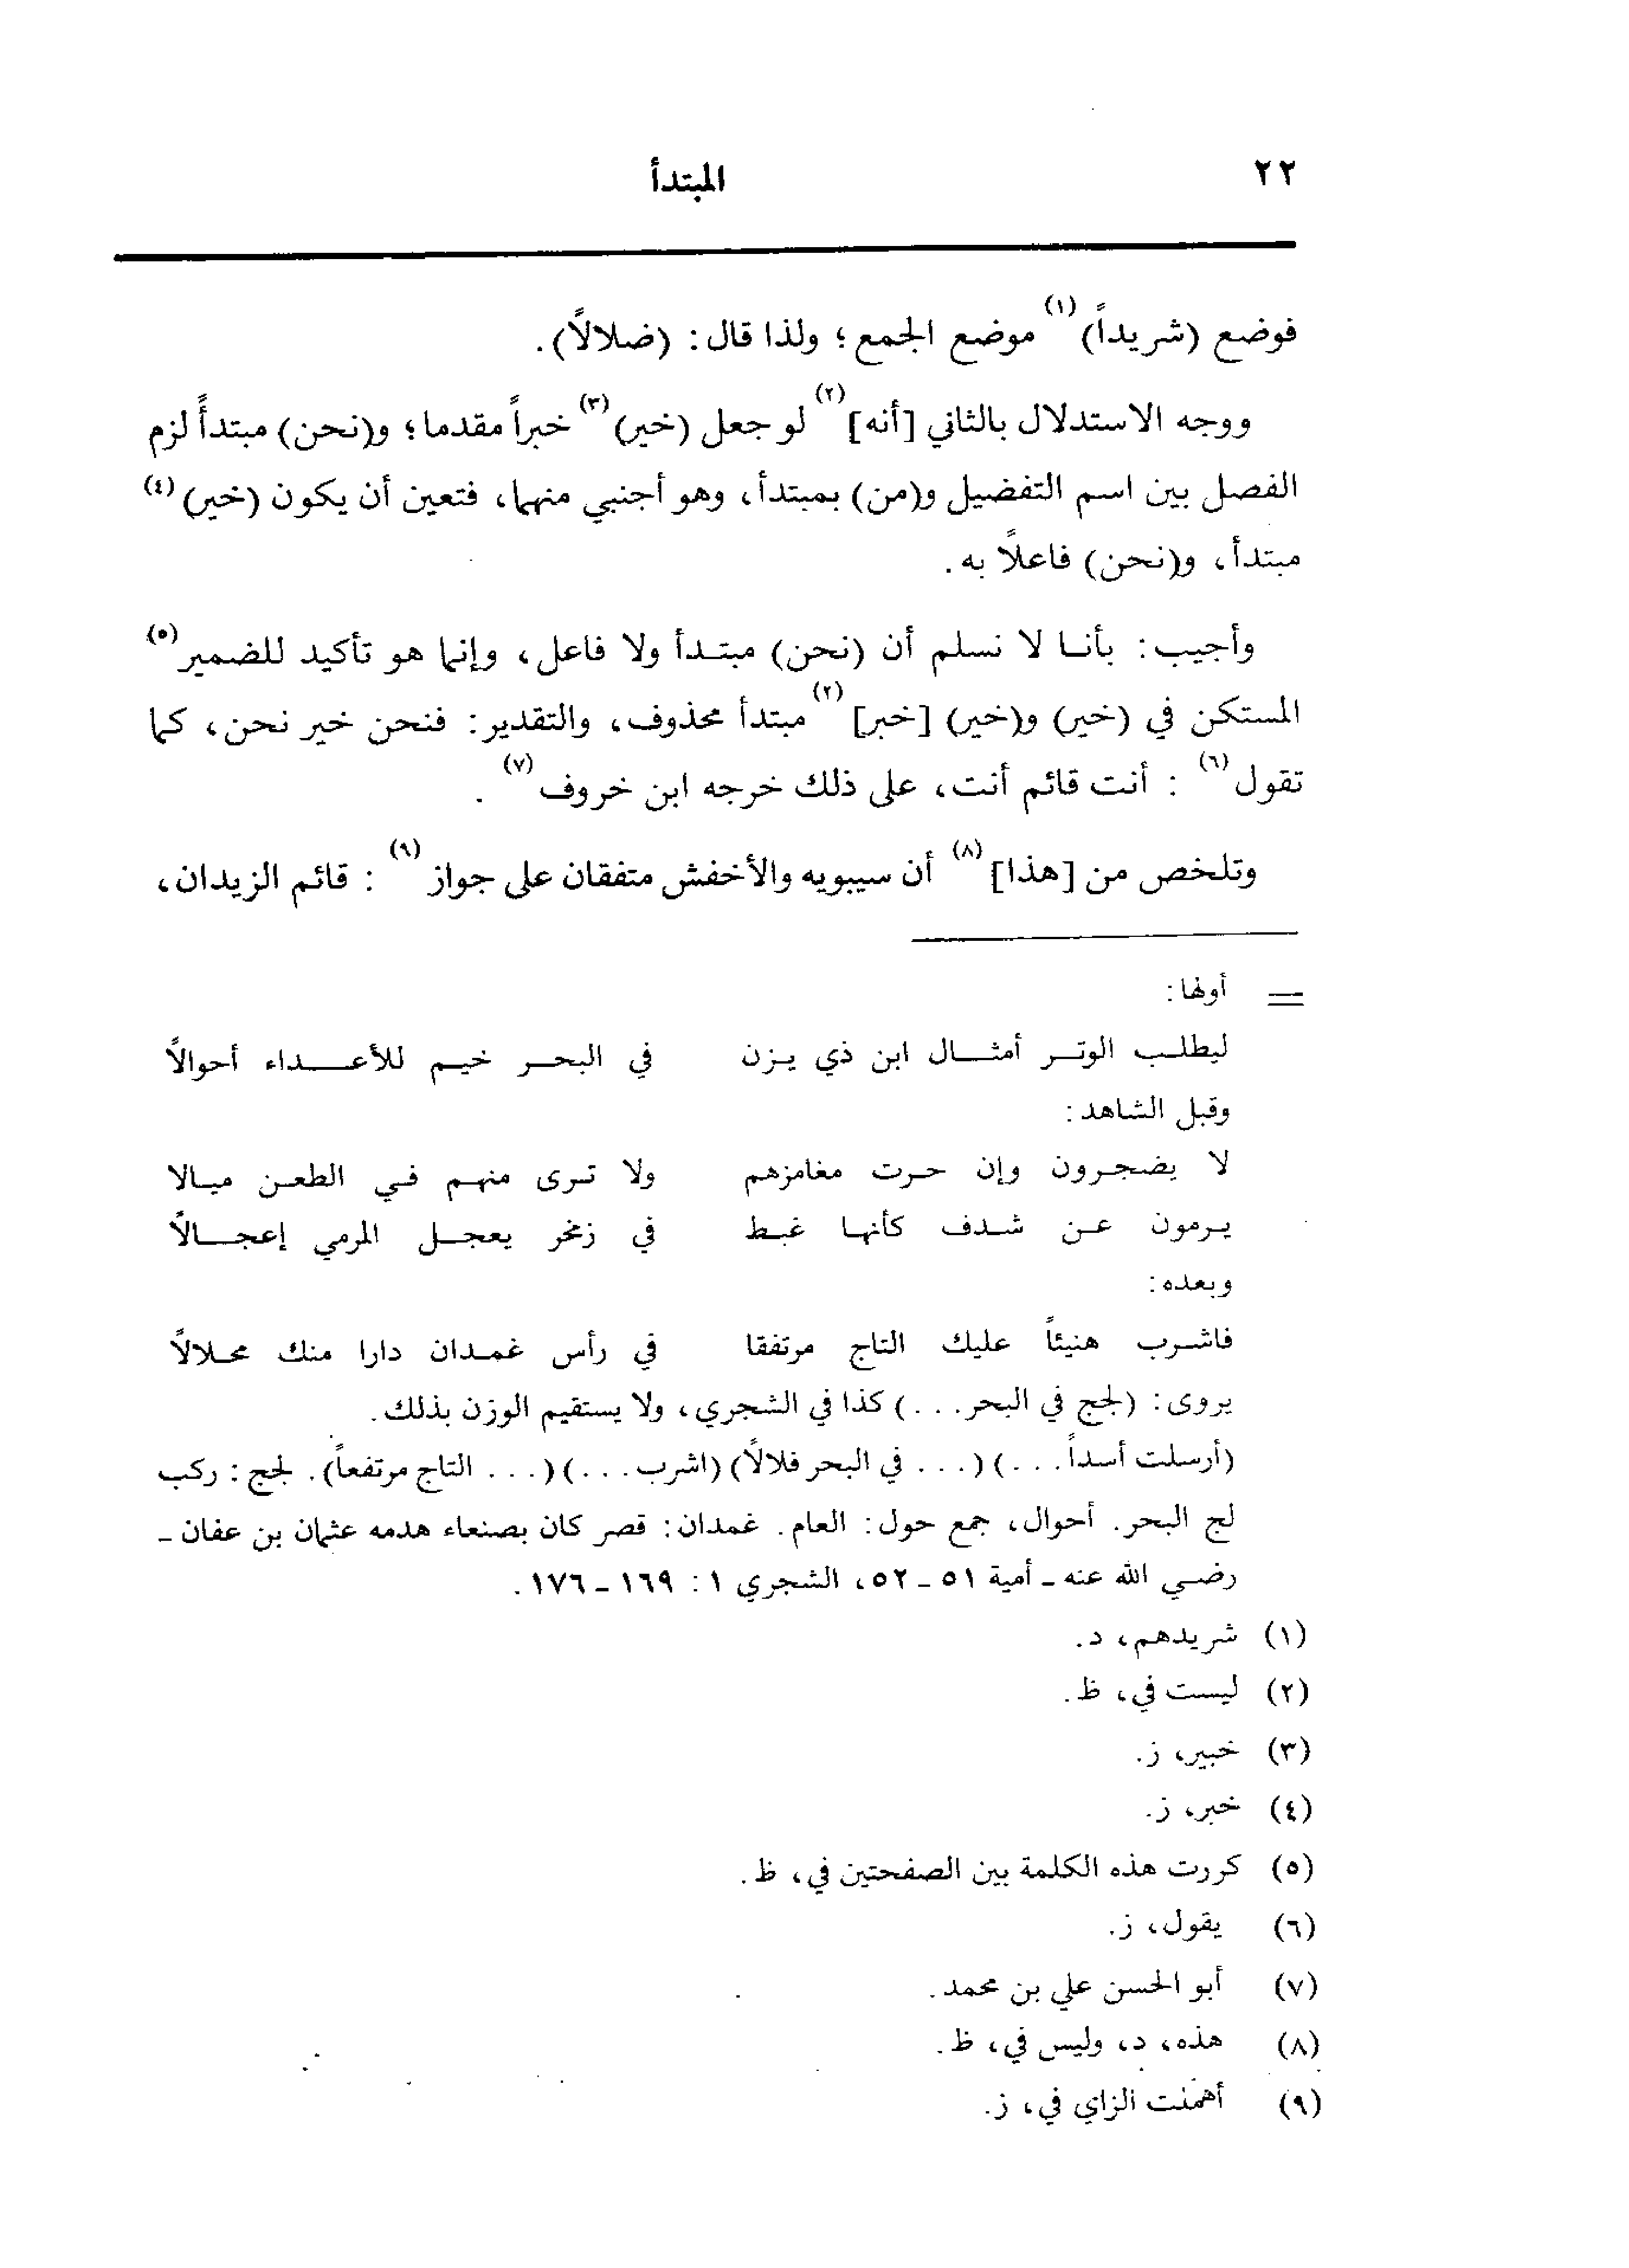 ٢٢
المبتدأ
فوضع (شريداً)(١) موضع الجمع؛ ولذا قال: (ضلالاً).
ووجه الاستدلال بالثاني [أنه](٢) لو جعل (خير)(٣) خبراً مقدما؛ و(نحن) مبتدأً لزم
الفصل بين اسم التفضيل و(من) بمبتدأ، وهو أجنبي منهما، فتعين أن يكون (خير)(٤)
مبتدأ، و(نحن) فاعلاً به.
وأجيب: بأنا لا نسلم أن (نحن) مبتدأ ولا فاعل، وإنما هو تأكيد للضمير(٥)
المستكن في (خير) و(خير) [خبر](٢) مبتدأ محذوف، والتقدير: فنحن خير نحن، كما
تقول(٦): أنت قائم أنت، على ذلك خرجه ابن خروف(٧).
وتلخص من [هذا](٨) أن سيبويه والأخفش متفقان على جواز(٩): قائم الزيدان،
= أولها:
ليطلب الوتر أمثال ابن ذي يزن في البحر خيم للأعداء أحوالاً
وقبل الشاهد:
لا يضجرون وإن حرت مغامزهم ولا ترى منهم في الطعن ميالا
يرمون عن شدف كأنها غبط في زمخر يعجل المرمي إعجالاً
وبعده:
فاشرب هنيئاً عليك التاج مرتفقا في رأس غمدان دارا منك محلالاً
يروى: (لجج في البحر...) كذا في الشجري، ولا يستقيم الوزن بذلك.
(أرسلت أسداً...) (... في البحر فلالاً) (اشرب...) (... التاج مرتفعاً). لجج: ركب
لج البحر. أحوال، جمع حول: العام. غمدان: قصر كان بصنعاء هدمه عثمان بن عفان -
رضي الله عنه - أمية ٥١ - ٥٢، الشجري ١: ١٦٩ - ١٧٦.
(١) شريدهم، د.
(٢) ليست في، ظ.
(٣) خبير، ز.
(٤) خبر، ز.
(٥) كررت هذه الكلمة بين الصفحتين في، ظ.
(٦) يقول، ز.
(٧) أبو الحسن علي بن محمد.
(٨) هذه، د، وليس في، ظ.
(٩) أهملت الزاي في، ز.